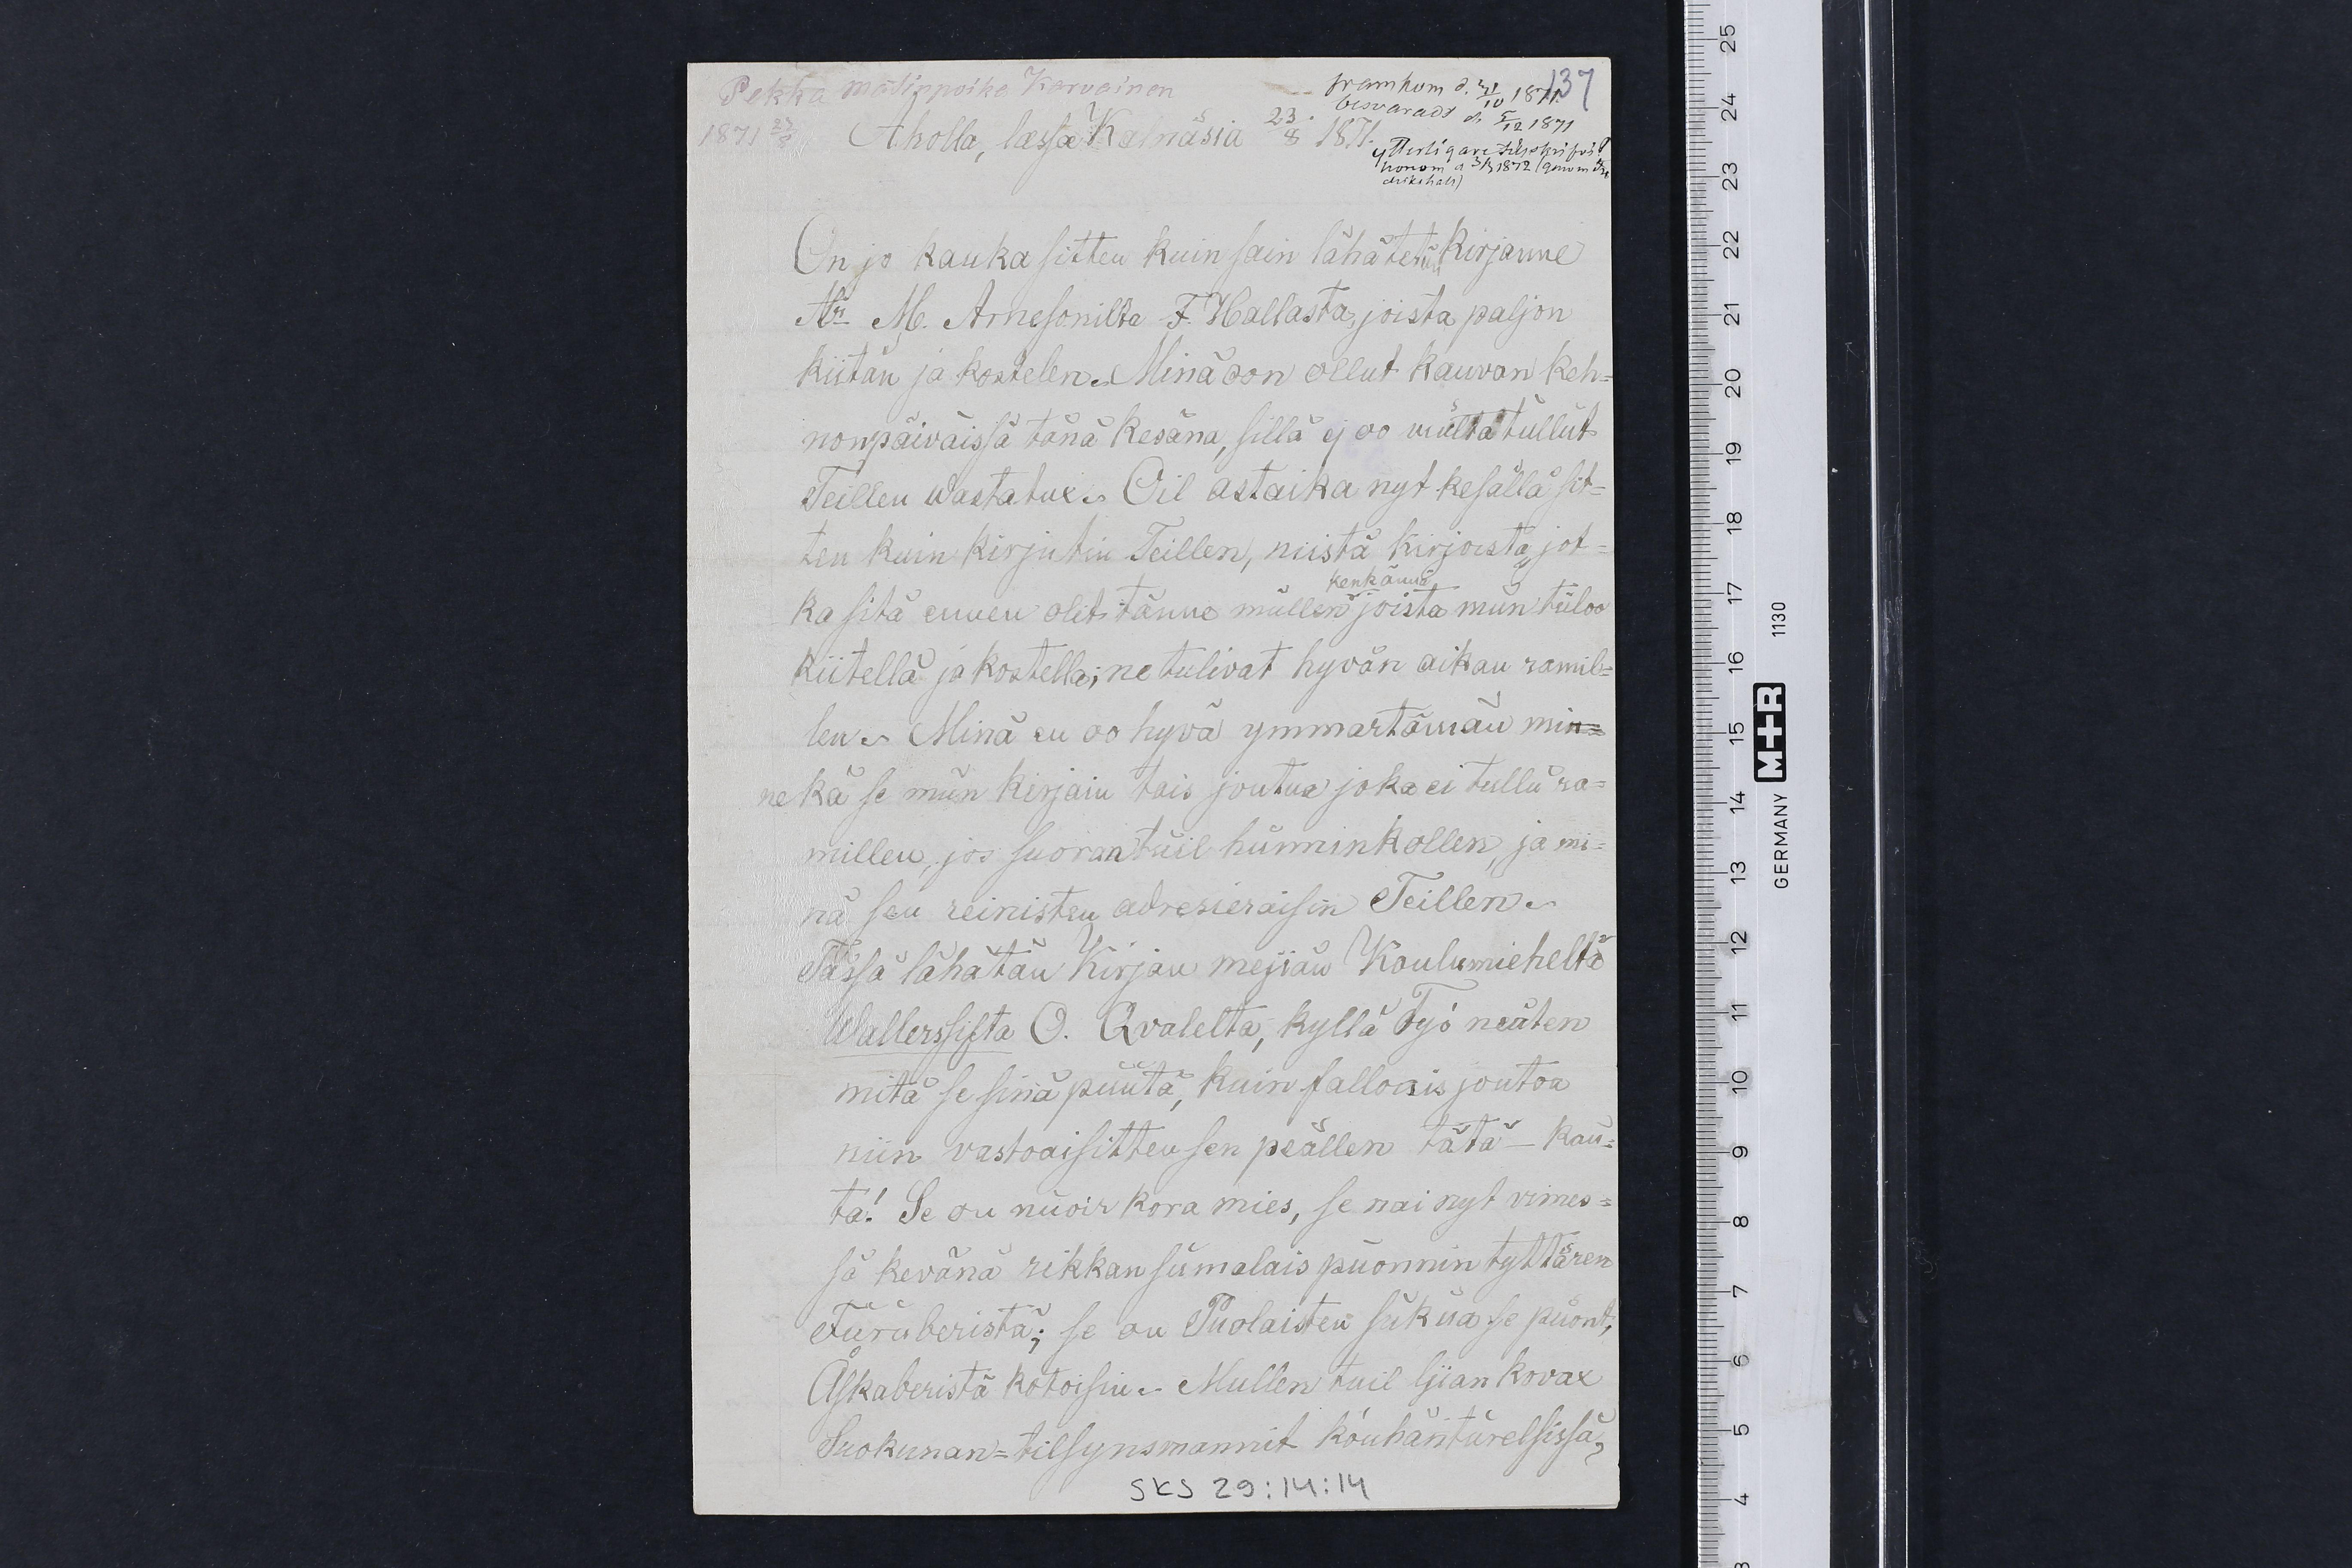 Pekka Matinpoika Karvainen
1871 23/8
framkom d. 31/10 1871.
137
besvarads d. 5/12 1871
Aholla, læssæ Kalnäsia 23/8 1871.
ytterligare
honom d 1872 (genom
On jo kauka sitten kuin sain lähätetün Kirjanne
Nr M. Arnesonilta F. Hallasta, joista paljon
kiitän ja kostelen. Minä oon ollut kauvan keh=
nonpäiväissä tänä kesänä, sillä ej oo mültä tüllüt
Teillen wastatux. Oil astaika nyt kesällä sit=
ten kuin kirjutin Teillen, niistä kirjoista, jot=
kenkännä
ka sitä ennen olit tänne müllen joista mün tüloo
kiitellä ja kostella; ne tulivat hyvän aikan ramil=
len. Minä en oo hyvä ymmartämän min=
ne kä se mün kirjain tais joutua joka ei tullü ra=
millen, jos suoran tuil hünninkollen, ja mi=
nä sen reinisten adresieraisin Teillen.
Tässä lähätän Kirjan mejiän Koulumieheltä
Wallerssista O. Qvalelta, kyllä Työ neäten
mitä se sinä püütä, kuin falloais joutoa
niin vastoaisitten sen peällen tätä – kau=
ta! Se on nüoir kora mies, se nai nyt vimes=
sä kevänä rikkan sümalais püonnin tyttären
Fürüberistä; se on Puolaisten sükua se püont,
Åskaberistä kotoisin. Mullen tuil ljian kovax
Suokunan=tilsynsmannit köuhäntürelsissä,
SKS 29:14:14
25
24
23
22
21
20
19
18
17
16
15
14
13
12
11
10
9
8
7
6
5
4
3
1130
M+R
GERMANY